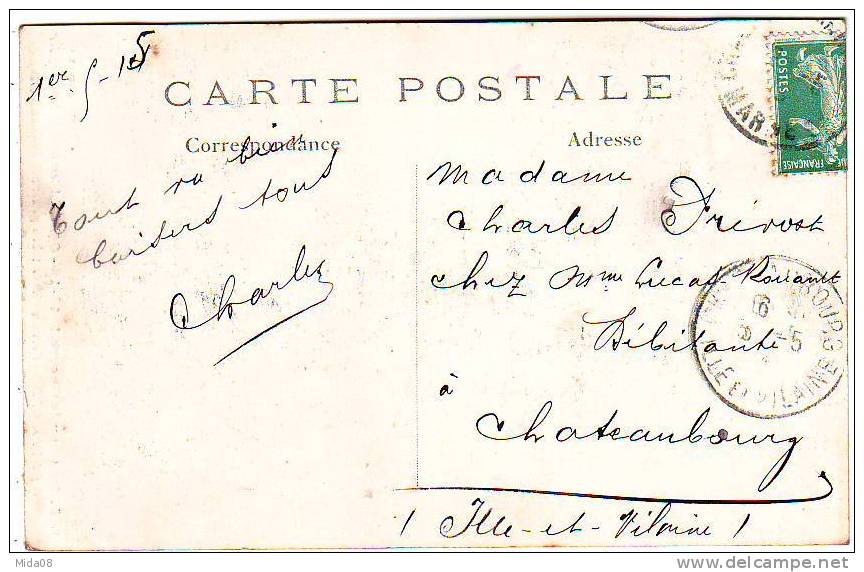 1er 5-15
CARTE POSTALE
Correspondance
Adresse
Tout va bien
baisers tous
Charles
Madame
Charles Prévost
Chez Mme Lucas-Rouault
Débitante
à
Chateaubourg
(Ille-et-Vilaine)
POSTES
FRANÇAISE
MARNE
BOURG
ILLE ET VILAINE
Mida08
www.delcampe.net